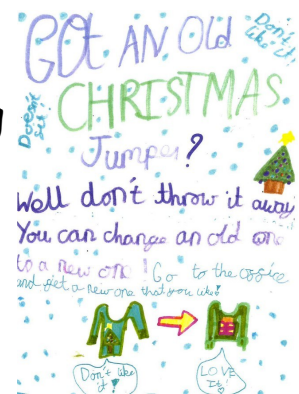 GOt AN Old
Don't like it!
Doesn't
CHRISTMAS
Jumper?
Well don't throw it away
You can change an old one
to a new one! Go to the office
and get a new one that you like!
Don't like it!
LOVE It!